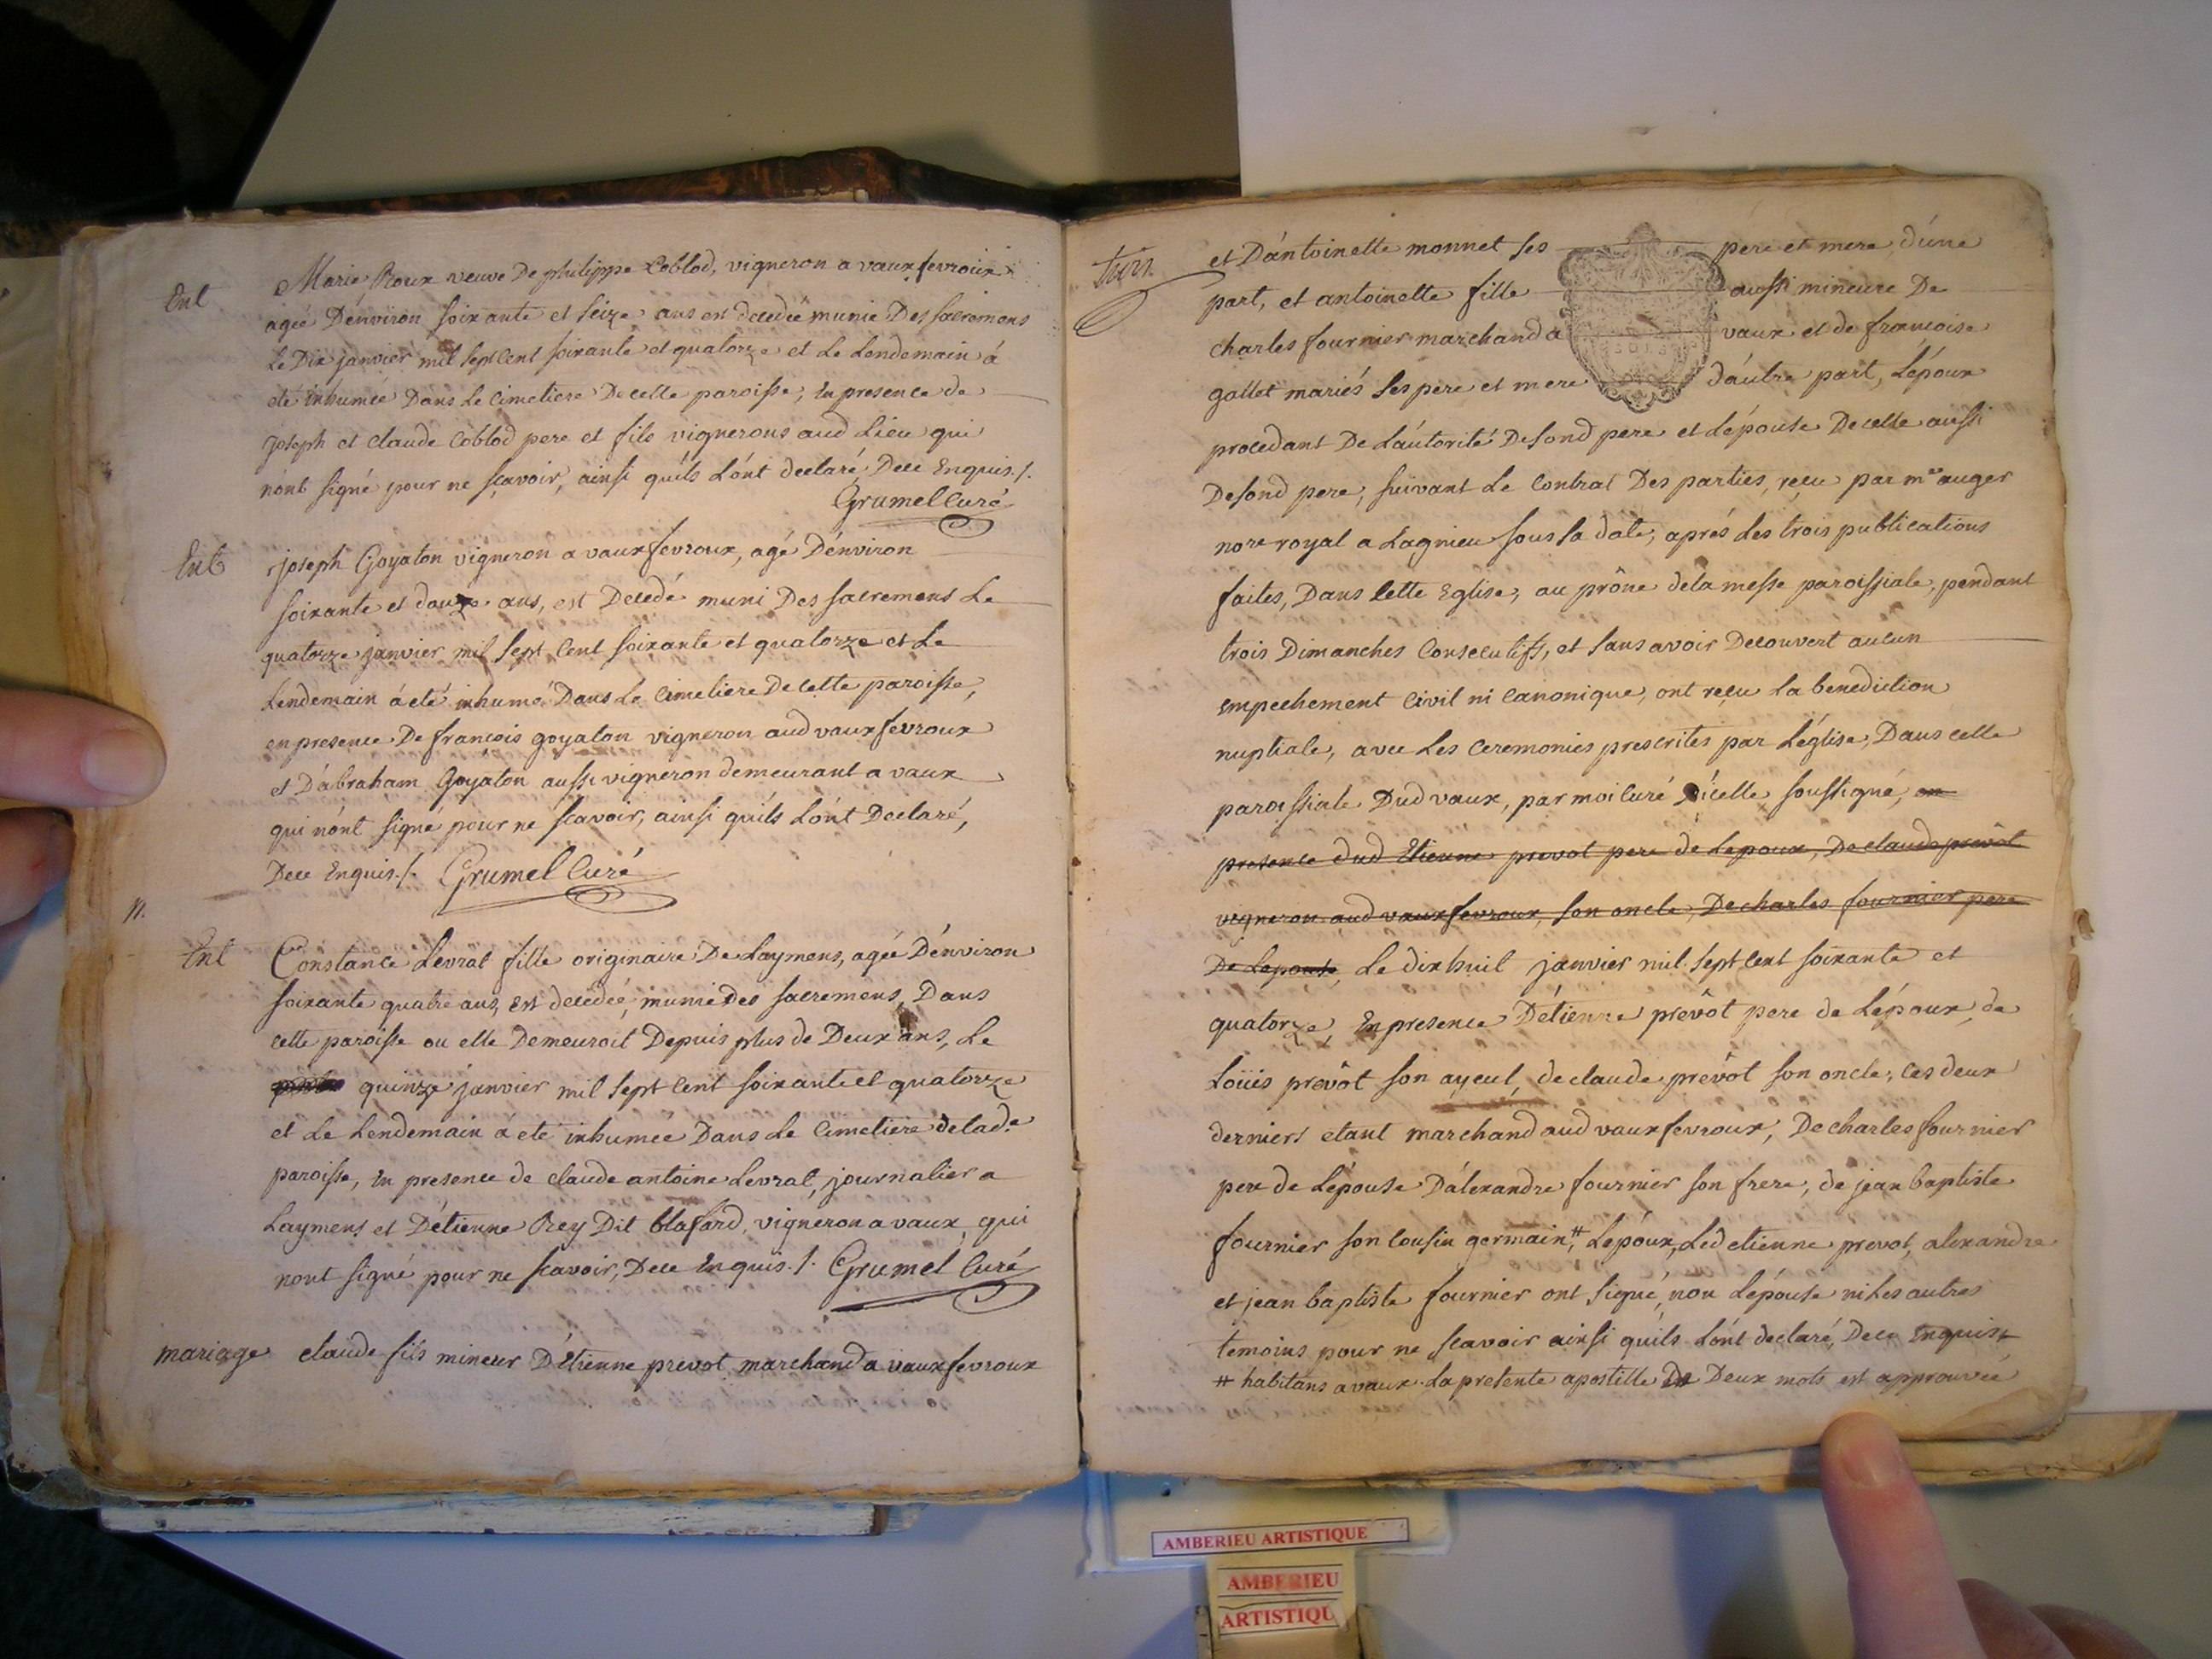 Ent
Marie Roux veuve De philippe Coblod, vigneron a vaux fevroux
agée D'environ soixante et seize ans est decedée munie Des sacremens
Le Dix janvier mil sept cent soixante et quatorze et Le Lendemain à
eté inhumée Dans Le Cimetiere De cette paroisse, en presence de
joseph et claude Coblod pere et fils vignerons aud Lieu qui
n'ont signé pour ne sçavoir, ainsi qu'ils L'ont declaré, Dece Enquis ./.
Grumel Curé
Ent
joseph Goyaton vigneron a vaux fevroux, agé D'environ
soixante et douze ans, est Decedé muni Des sacremens Le
quatorze janvier mil sept Cent soixante et quatorze et Le
Lendemain à eté inhumé Dans Le Cimetiere De cette paroisse,
en presence De françois goyaton vigneron aud vaux fevroux
et D'abraham Goyaton aussi vigneron demeurant a vaux
qui n'ont signé pour ne sçavoir, ainsi qu'ils L'ont Declaré,
Dece Enquis ./. Grumel Curé
n.
Ent
Constance Levrat fille originaire De Laymens, agée D'environ
soixante quatre ans, est decedée, munie des sacremens, Dans
cette paroisse ou elle Demeuroit Depuis plus de Deux ans, Le
quinze janvier mil sept Cent soixante et quatorze
et Le Lendemain à eté inhumée Dans Le Cimetiere de lade
paroisse, en presence de claude antoine Levrat, journalier a
Laymens et D'étienne Rey Dit blafard, vigneron a vaux, qui
n'ont signé pour ne sçavoir, Dece Enquis ./. Grumel Curé
mariage claude fils mineur D'Etienne prevot marchand a vaux fevroux
et D'antoinette monnet ses pere et mere d'une
part, et antoinette fille aussi mineure De
charles fournier marchand a vaux et de françoise
SOLS
gallet mariés ses pere et mere d'autre part, L'époux
procedant De L'autorité De sond pere et L'épouse De celle aussi
De sond pere, suivant Le Contrat Des parties, reçu par me auger
nore royal a Lagnieu sous sa date, aprés Les trois publications
faites, Dans Cette Eglise, au prône de la messe paroissiale, pendant
trois Dimanches Consecutifs, et sans avoir Decouvert aucun
empechement Civil ni Canonique, ont reçu La benediction
nuptiale, avec Les Ceremonies prescrites par L'église, Dans celle
paroissiale Dud vaux, par moi Curé D'icelle soussigné, en
presence dud Etienne prevot pere de Lepoux, De claude prevôt
vigneron aud vaux fevroux, son oncle, De charles fournier pere
De Lepouse, Le dix huit janvier mil sept cent soixante et
quatorze, En presence D'étienne prevôt pere de L'époux, de
Loüis prevôt son ayeul, de claude prevôt son oncle, ces deux
derniers etant marchand aud vaux fevroux, De charles fournier
pere de L'épouse D'alexandre fournier son frere, de jean baptiste
fournier son Cousin germain,# L'époux, Led etienne prevot, alexandre
et jean baptiste fournier ont signé, non L'épouse ni Les autres
temoins pour ne sçavoir ainsi qu'ils L'ont declaré, Dece Enquis
# habitans a vaux. La presente apostille De Deux mots est approuvée
AMBERIEU ARTISTIQUE
AMBERIEU
ARTISTIQU